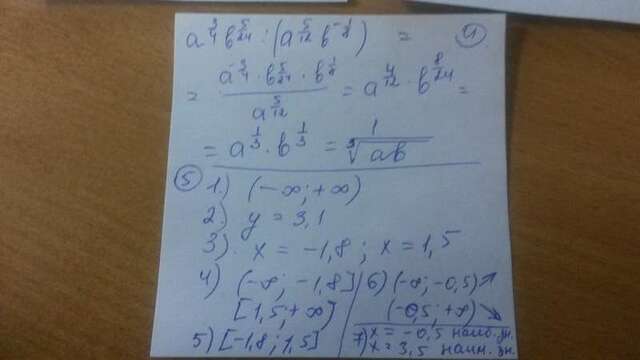 a^{3/4} b^{5/24} : (a^{5/12} b^{-1/8}) = ④
= \frac{a^{3/4} · b^{5/24} · b^{1/8}}{a^{5/12}} = a^{4/12} · b^{8/24} =
= a^{1/3} · b^{1/3} = \frac{1}{\sqrt[3]{ab}}
⑤ 1.) (-∞; +∞)
2.) y = 3,1
3.) x = -1,8 ; x = 1,5
4) (-∞; -1,8]
[1,5; +∞)
5) [-1,8; 1,5]
6) (-∞; -0,5) ↗
(-0,5; +∞) ↘
7) x = -0,5 наиб. зн.
x = 3,5 наим. зн.